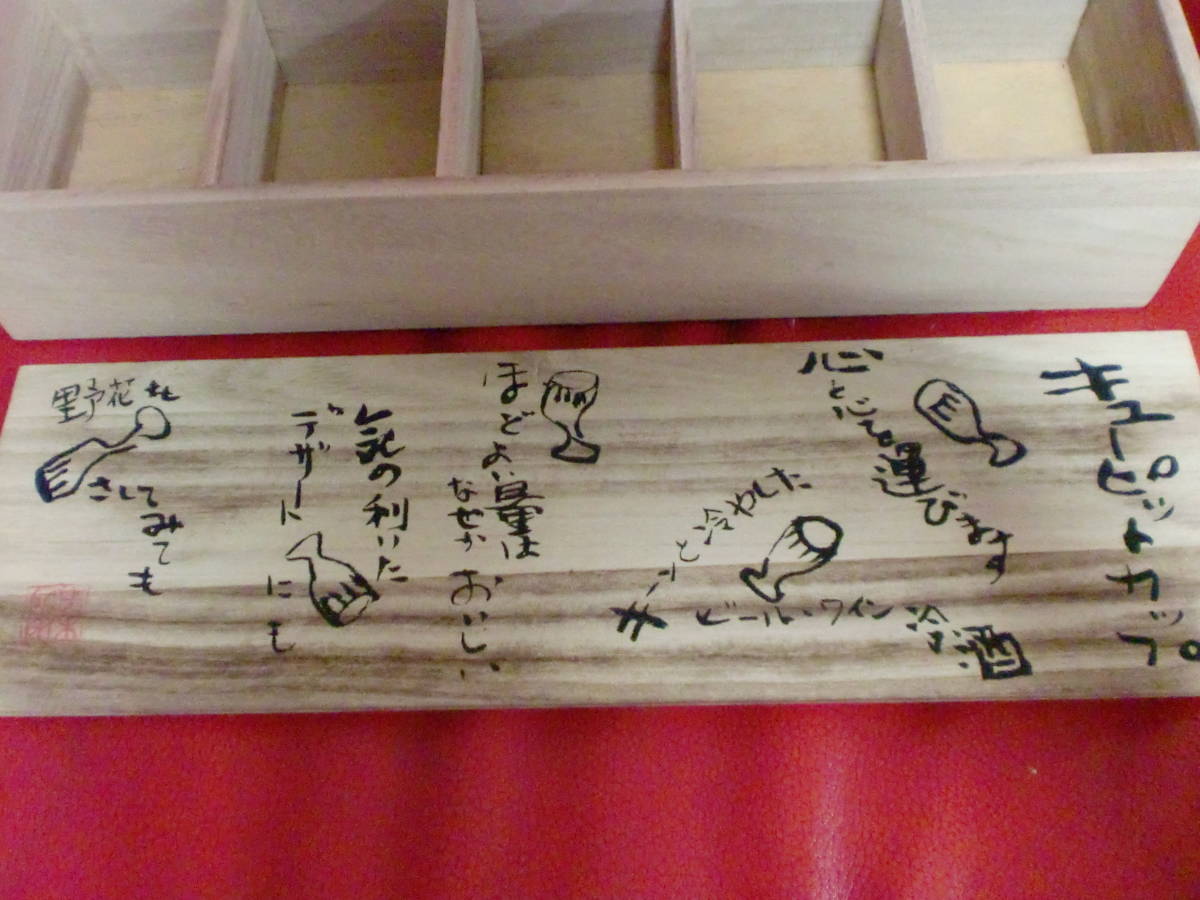 キューピットカップ
心と心を運びます
キーンと冷やした
ビール・ワイン冷酒
ほどよい量は
なぜかおいしい
気の利いた
デザートにも
野花も
さしてみても